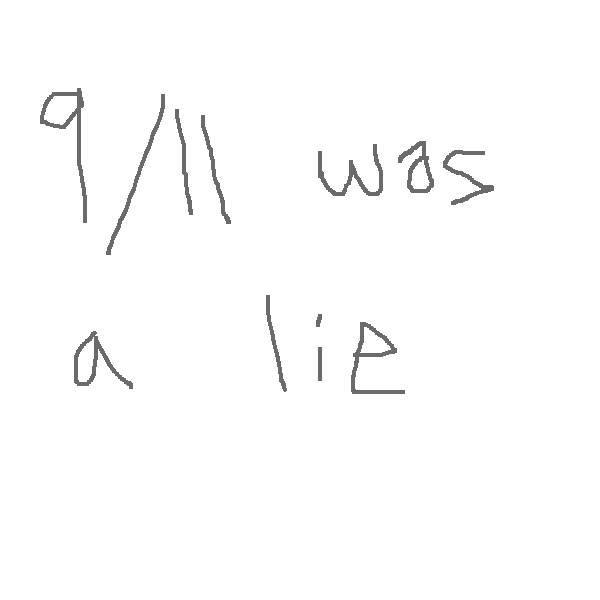 9/11 was
a lie